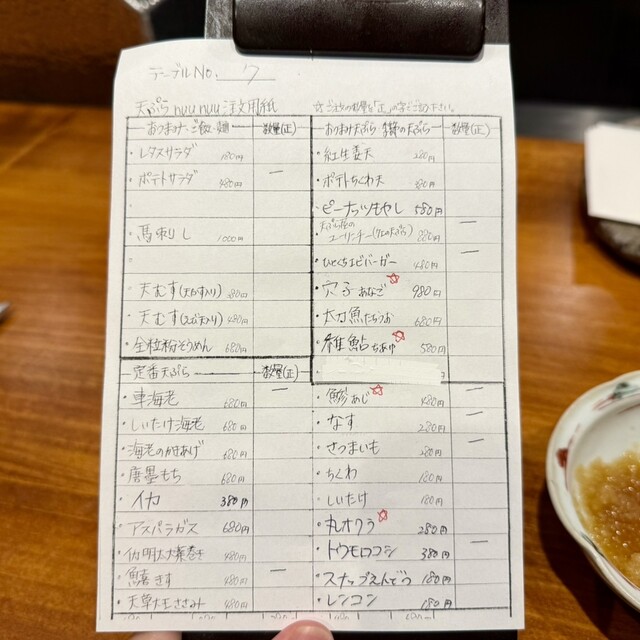 テーブルNo. 7
天ぷら nuu nuu 注文用紙
おつまみ・ご飯・麺 数量(正)
・レタスサラダ 180円
・ポテトサラダ 480円 一
・馬刺し 1000円
天むす(天かす入り) 180円
天むす(えび天入り) 480円
・全粒粉そうめん 680円
定番天ぷら 数量(正)
・車海老 680円 一
・しいたけ海老 680円
・海老のかきあげ 680円
・唐墨もち 680円
・イカ 380円
・アスパラガス 680円
・伯明太大葉巻き 480円
・鱚きす 480円 一
・天草大王ささみ 480円
おつまみ天ぷら・季節の天ぷら 数量(正)
・紅生姜天 280円
・ポテトちくわ天
・ピーナッツもやし 580円
天ぷら屋の
ユーリンチー 880円 一
・ひとくちエビバーガー 480円 一
・穴子あなご 980円
・太刀魚たちうお 680円
・稚鮎ちあゆ 580円
・鯵あじ 480円 一
・なす 280円 一
・さつまいも 280円 一
・ちくわ 180円
・しいたけ 180円
・丸オクラ 280円
・トウモロコシ 380円 一
・スナップえんどう 180円
・レンコン 180円